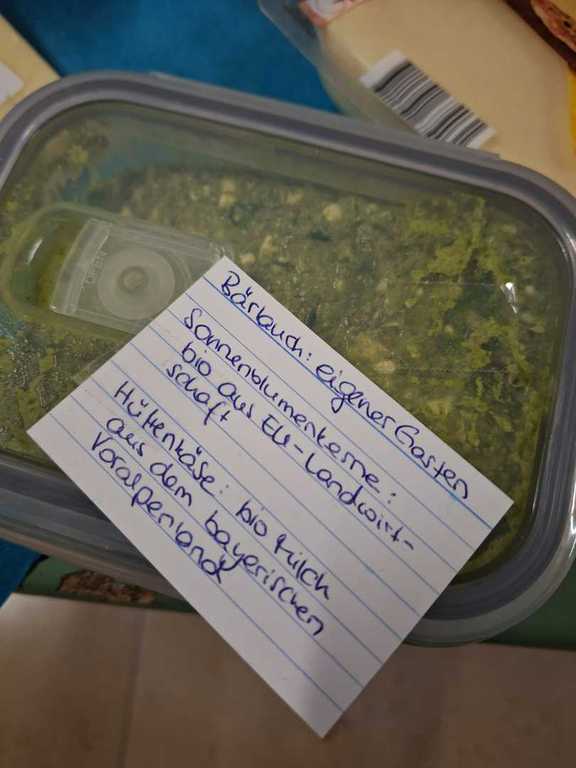 Bärlauch: eigener Garten
Sonnenblumenkerne:
bio aus EU-Landwirt-
schaft
Hüttenkäse: bio Milch
aus dem bayerischen
Voralpenland